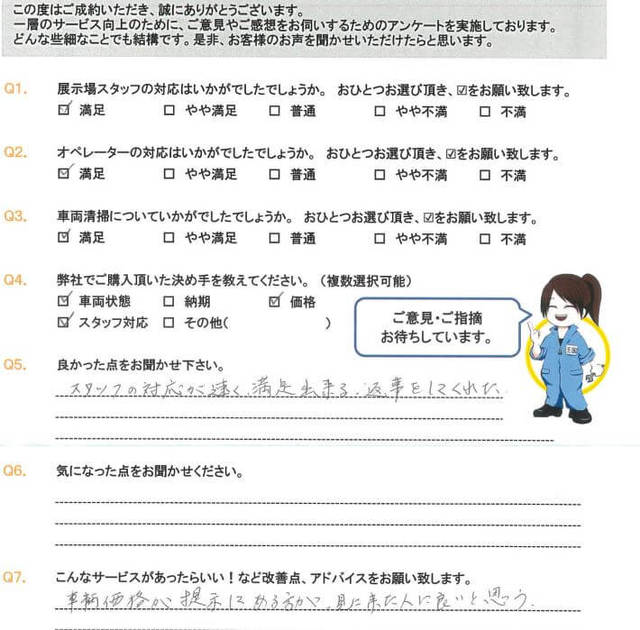 この度はご成約いただき、誠にありがとうございます。
一層のサービス向上のために、ご意見やご感想をお伺いするためのアンケートを実施しております。
どんな些細なことでも結構です。是非、お客様のお声を聞かせいただけたらと思います。
Q1. 展示場スタッフの対応はいかがでしたでしょうか。 おひとつお選び頂き、☑をお願い致します。
☑ 満足 □ やや満足 □ 普通 □ やや不満 □ 不満
Q2. オペレーターの対応はいかがでしたでしょうか。 おひとつお選び頂き、☑をお願い致します。
☑ 満足 □ やや満足 □ 普通 □ やや不満 □ 不満
Q3. 車両清掃についていかがでしたでしょうか。 おひとつお選び頂き、☑をお願い致します。
☑ 満足 □ やや満足 □ 普通 □ やや不満 □ 不満
Q4. 弊社でご購入頂いた決め手を教えてください。(複数選択可能)
☑ 車両状態 □ 納期 ☑ 価格
☑ スタッフ対応 □ その他( )
ご意見・ご指摘
お待ちしています。
Q5. 良かった点をお聞かせ下さい。
スタッフの対応が速く、満足出来る、返事をしてくれた。
Q6. 気になった点をお聞かせください。
Q7. こんなサービスがあったらいい！など改善点、アドバイスをお願い致します。
車輌価格が、提示にある方が、見に来た人に良いと思う。